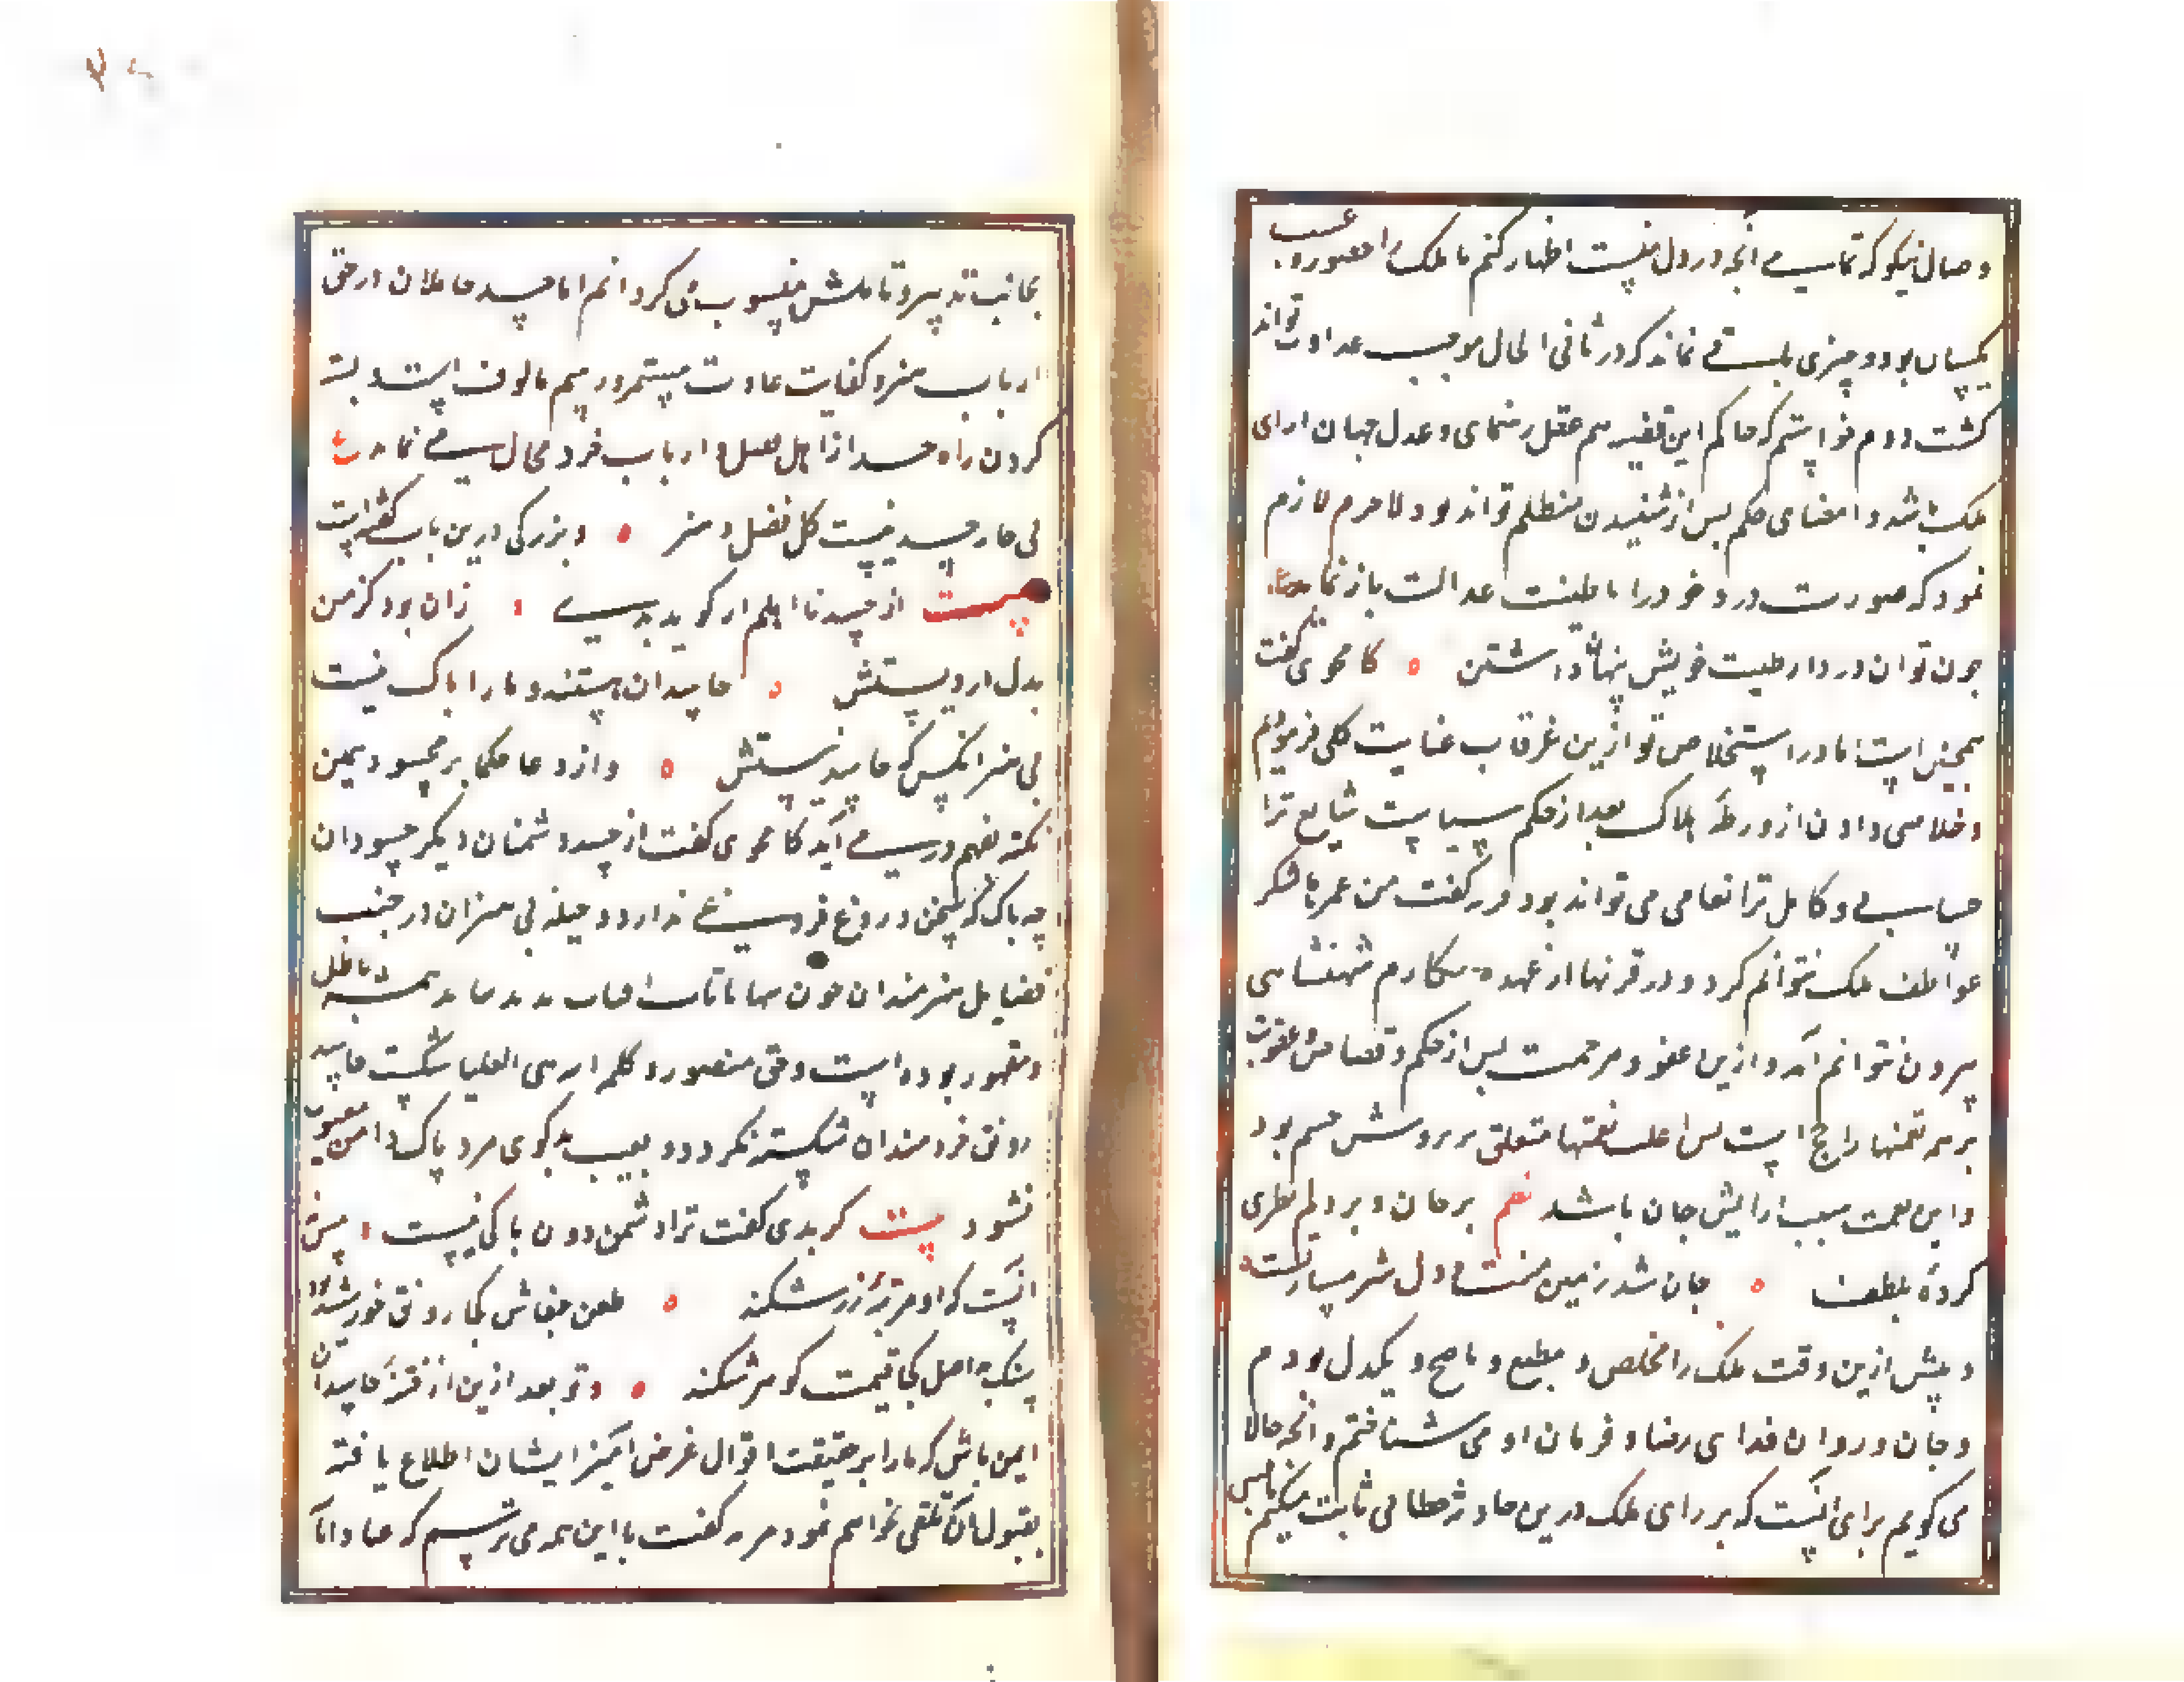 وصال نیکو که تماسی آنچه در دل منست اظهار کنم تا ملک را حضور و غیب
یکسان بود و چیزی باقی نماند که در ثانی الحال موجب عداوت تواند
گشت دوم خواستم که حاکم این قضیه هم عقل رهنمای و عدل جهان ارای
ملک باشد و امضای حکم پس از شنیدن متظلم تواند بود لاجرم لازم
نمود که صورت درد خود را با طینت عدالت باز نماید
چون توان درد از طبیب خویش پنهان داشتن کامجوی گفت
همچنین است اما در استخلاص تو ازین غرقاب عنایت کلی فرمودم
و خلاصی دادن از ورطه هلاک بعد از حکم سیاست شایع ترا
حسابی و کامل ترانعامی می تواند بود فریسه گفت من عمرها شکر
عواطف ملک نتوانم کرد و در قرنها از عهده مکارم شهنشاهی
بیرون نتوانم آمد و ازین عفو و مرحمت پس از حکم و قصاص عقوبت
بر همه نعمتها راجح است پس اغلب نعمتها متعلق بپرورش جسم بود
و این نعمت سبب ارایش جان باشد نظم بر جان و بر دلم نظری
کرده بلطف جان شد رهین منت و دل شرمسار تست
و پیش ازین وقت ملک را مخلص و مطیع و ناصح و یکدل بودم
و جان و روان فدای رضا و فرمان او می شناختم و آنچه حالا
می گویم برای انست که بر رای ملک درین حادثه خطامی ثابت میکنم
بجانب تدبیر و تاملش منسوب می گردانم اما حسد جاهلان در حق
ارباب هنر و کفایت عادت مستمر و رسم مالوف است و بسته
کردن راه حسد از اهل فضل و ارباب خرد محال می نماید ع
بی خار حسد نیست گل فضل و هنر و بزرگی درین باب گفته است
بیت از حسد نااهلم ار گوید بدی زان بود کز من
بدل ارد پستش حاسدان هستند و ما را باک نیست
بی هنر انکس که حاسد نیستش و از دعا حکما بر محسود همین
نکته بفهم درمی آید کامجوی گفت از حسد دشمنان و مکر حسودان
چه باک که سخن دروغ فروغی ندارد و حیله بی هنران در جنب
فضایل هنرمندان چون سها با تاب افتاب بدید نیاید همیشه باطل
و مقهور بوده است و حق منصور و کلمة الله هی العلیا شکست حاسد
رونق خردمندان شکسته نگردد و بعیب بدگوی مرد پاک دامن معیوب
نشود بیت گر بدی گفت ترا دشمن دون باکی نیست پیش
انست که او مرتبه زر شکند طعن خفاش کجا رونق خورشید برد
سنگ بد اصل کجا قیمت گوهر شکند و تو بعد ازین از فتنه حاسدان
ایمن باش که ما را بر حقیقت اقوال غرض آمیز ایشان اطلاع یافته
بقبول آن تلقی نخواهم نمود فریسه گفت با این همه می ترسم که عیاذا